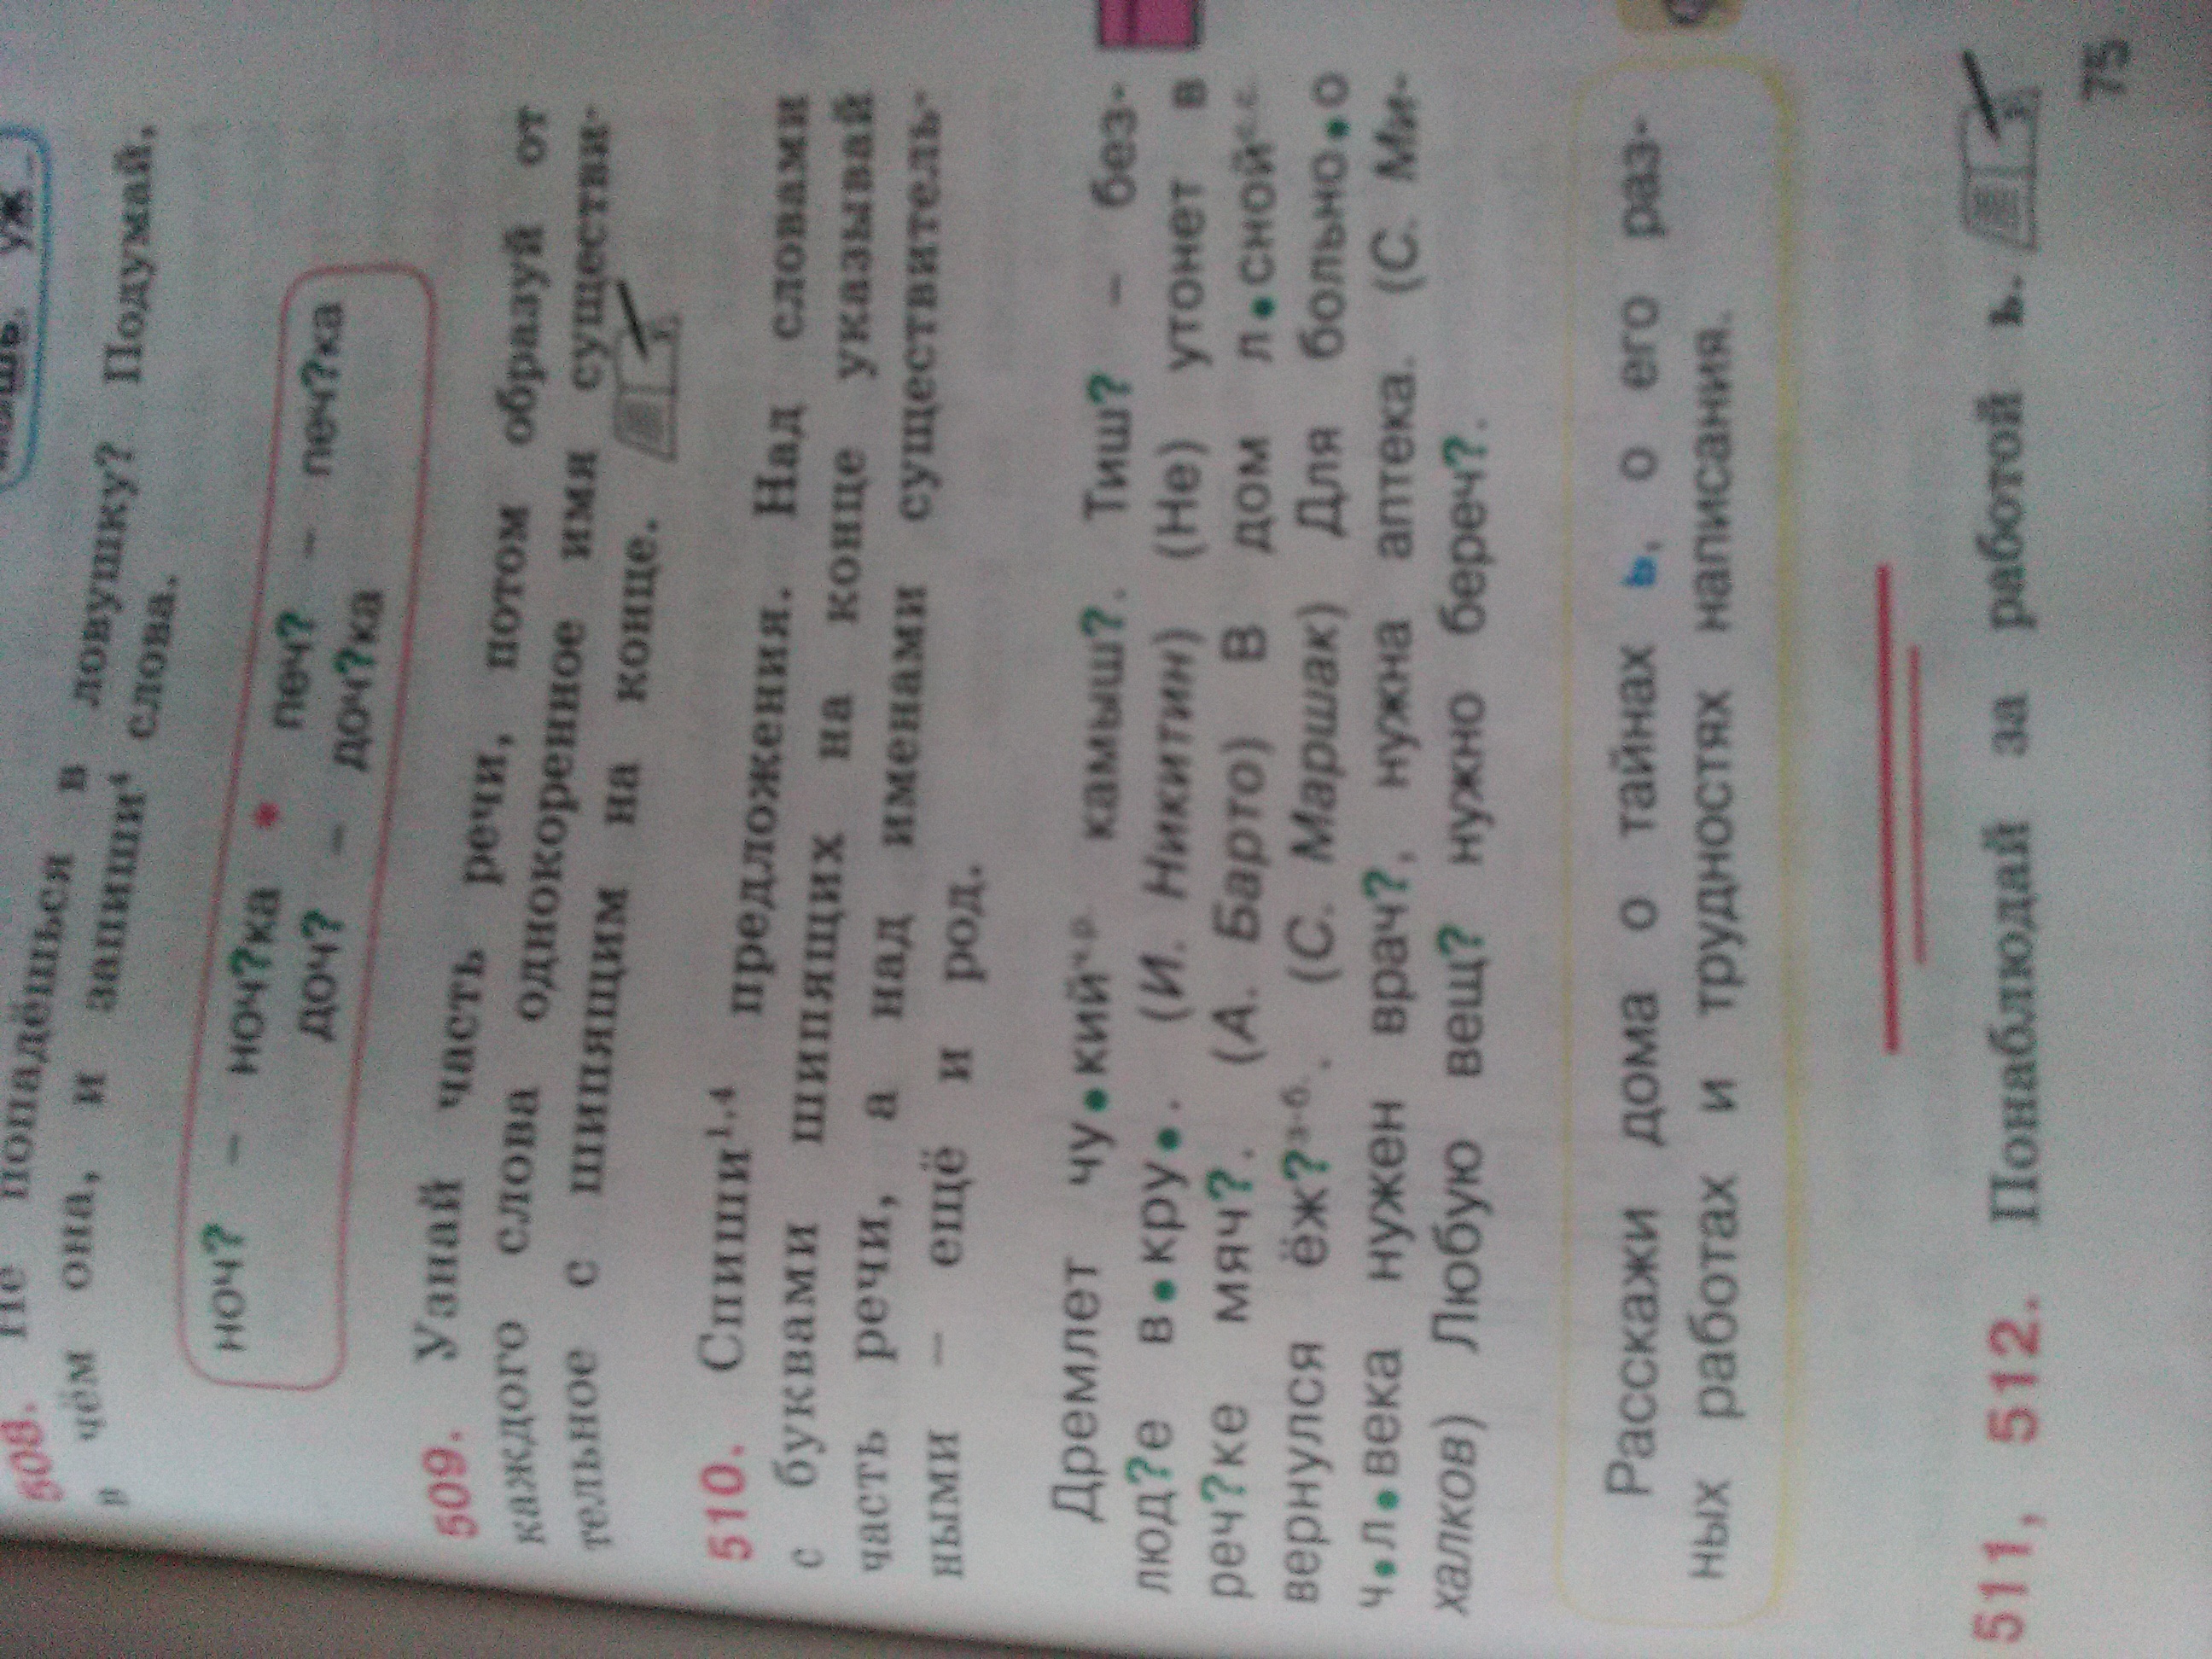 мышь. уж
508. Не попадёшься в ловушку? Подумай,
в чём она, и запиши⁴ слова.
ноч? – ноч?ка * печ? – печ?ка
доч? – доч?ка
509. Узнай часть речи, потом образуй от
каждого слова однокоренное имя существи-
тельное с шипящим на конце.
510. Спиши¹,⁴ предложения. Над словами
с буквами шипящих на конце указывай
часть речи, а над именами существитель-
ными – ещё и род.
Дремлет чу•кийч.р. камыш?. Тиш? – без-
люд?е в•кру•. (И. Никитин) (Не) утонет в
реч?ке мяч?. (А. Барто) В дом л•снойс.с.
вернулся ёж?з-б.. (С. Маршак) Для больно•о
ч•л•века нужен врач?, нужна аптека. (С. Ми-
халков) Любую вещ? нужно береч?.
Расскажи дома о тайнах ь, о его раз-
ных работах и трудностях написания.
511, 512. Понаблюдай за работой ь.
75